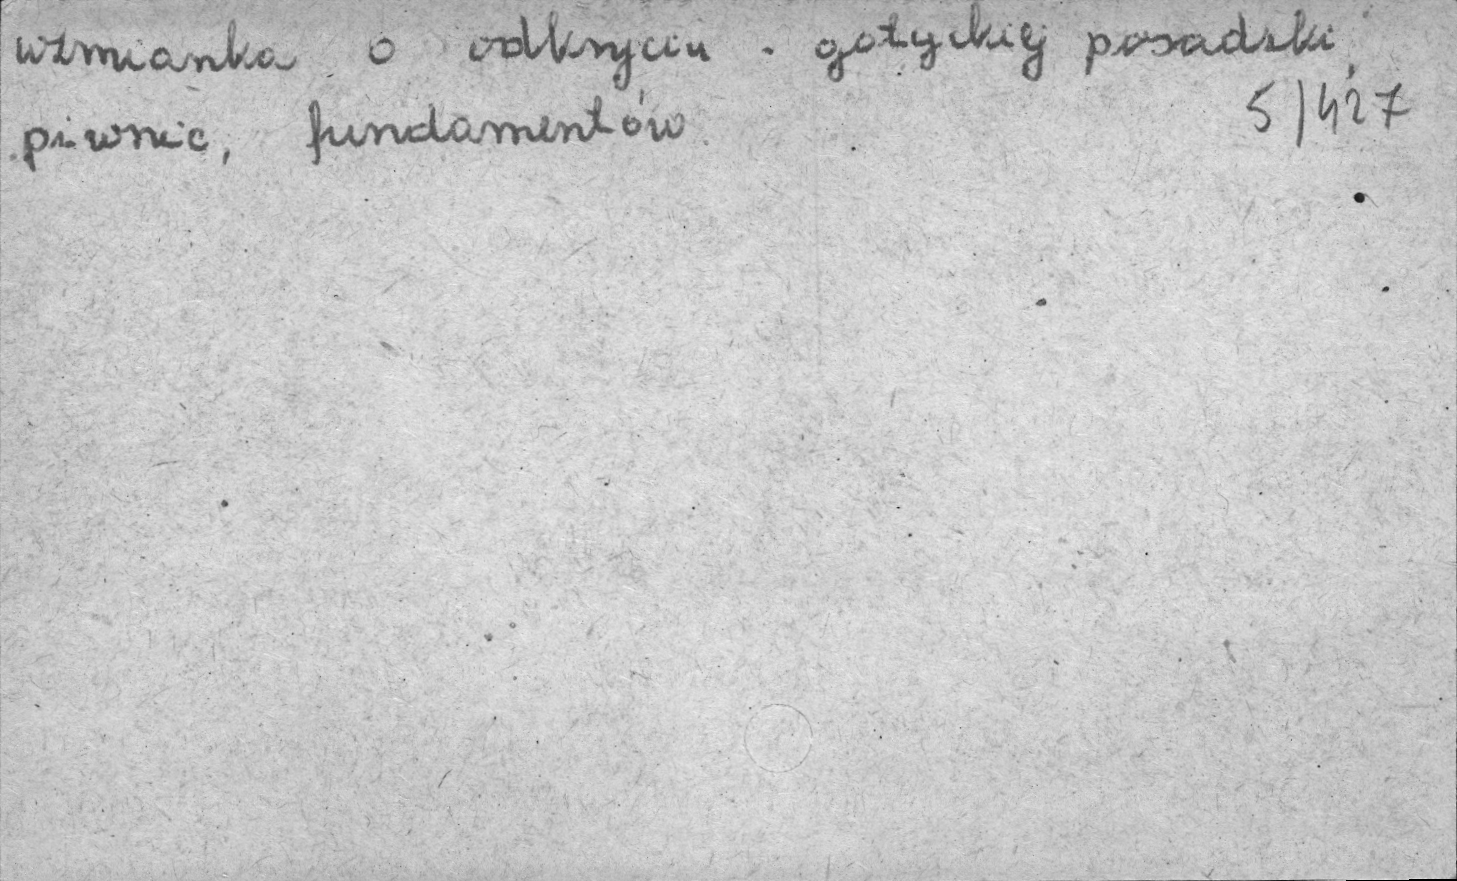 wzmianka o odkryciu gotyckiej posadzki,
piwnic, fundamentów
5/427